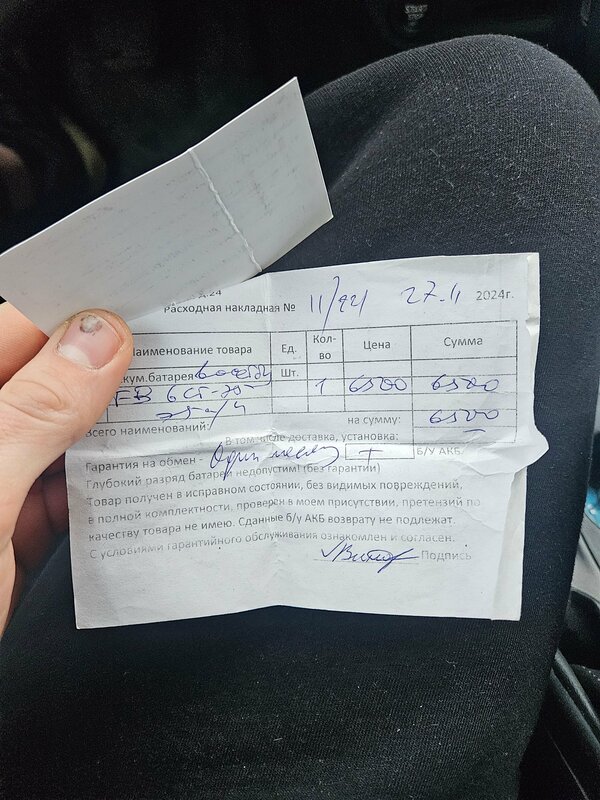 Расходная накладная № 11/221 27.11 2024г.
Наименование товара Ед. Кол-во Цена Сумма
кум.батарея Шт.
FB 6СТ-75 1 6500 6500
75 а/ч
Всего наименований: на сумму: 6500
В том числе доставка, установка:
Гарантия на обмен - Один месяц Б/У АКБ.
Глубокий разряд батарей недопустим! (без гарантии)
Товар получен в исправном состоянии, без видимых повреждений,
в полной комплектности, проверен в моем присутствии, претензий по
качеству товара не имею. Сданные б/у АКБ возврату не подлежат.
С условиями гарантийного обслуживания ознакомлен и согласен.
Подпись